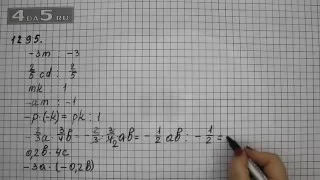 4DA5.RU
1295.
-3m : -3
2/5 cd : 2/5
mk 1
-am : -1
-p·(-k) = pk : 1
-2/3 a · 3/4 b = -2/3 · 3/4 2 ab = -1/2 ab : -1/2 =
0,2b · 4c
-3a · (-0,2b)